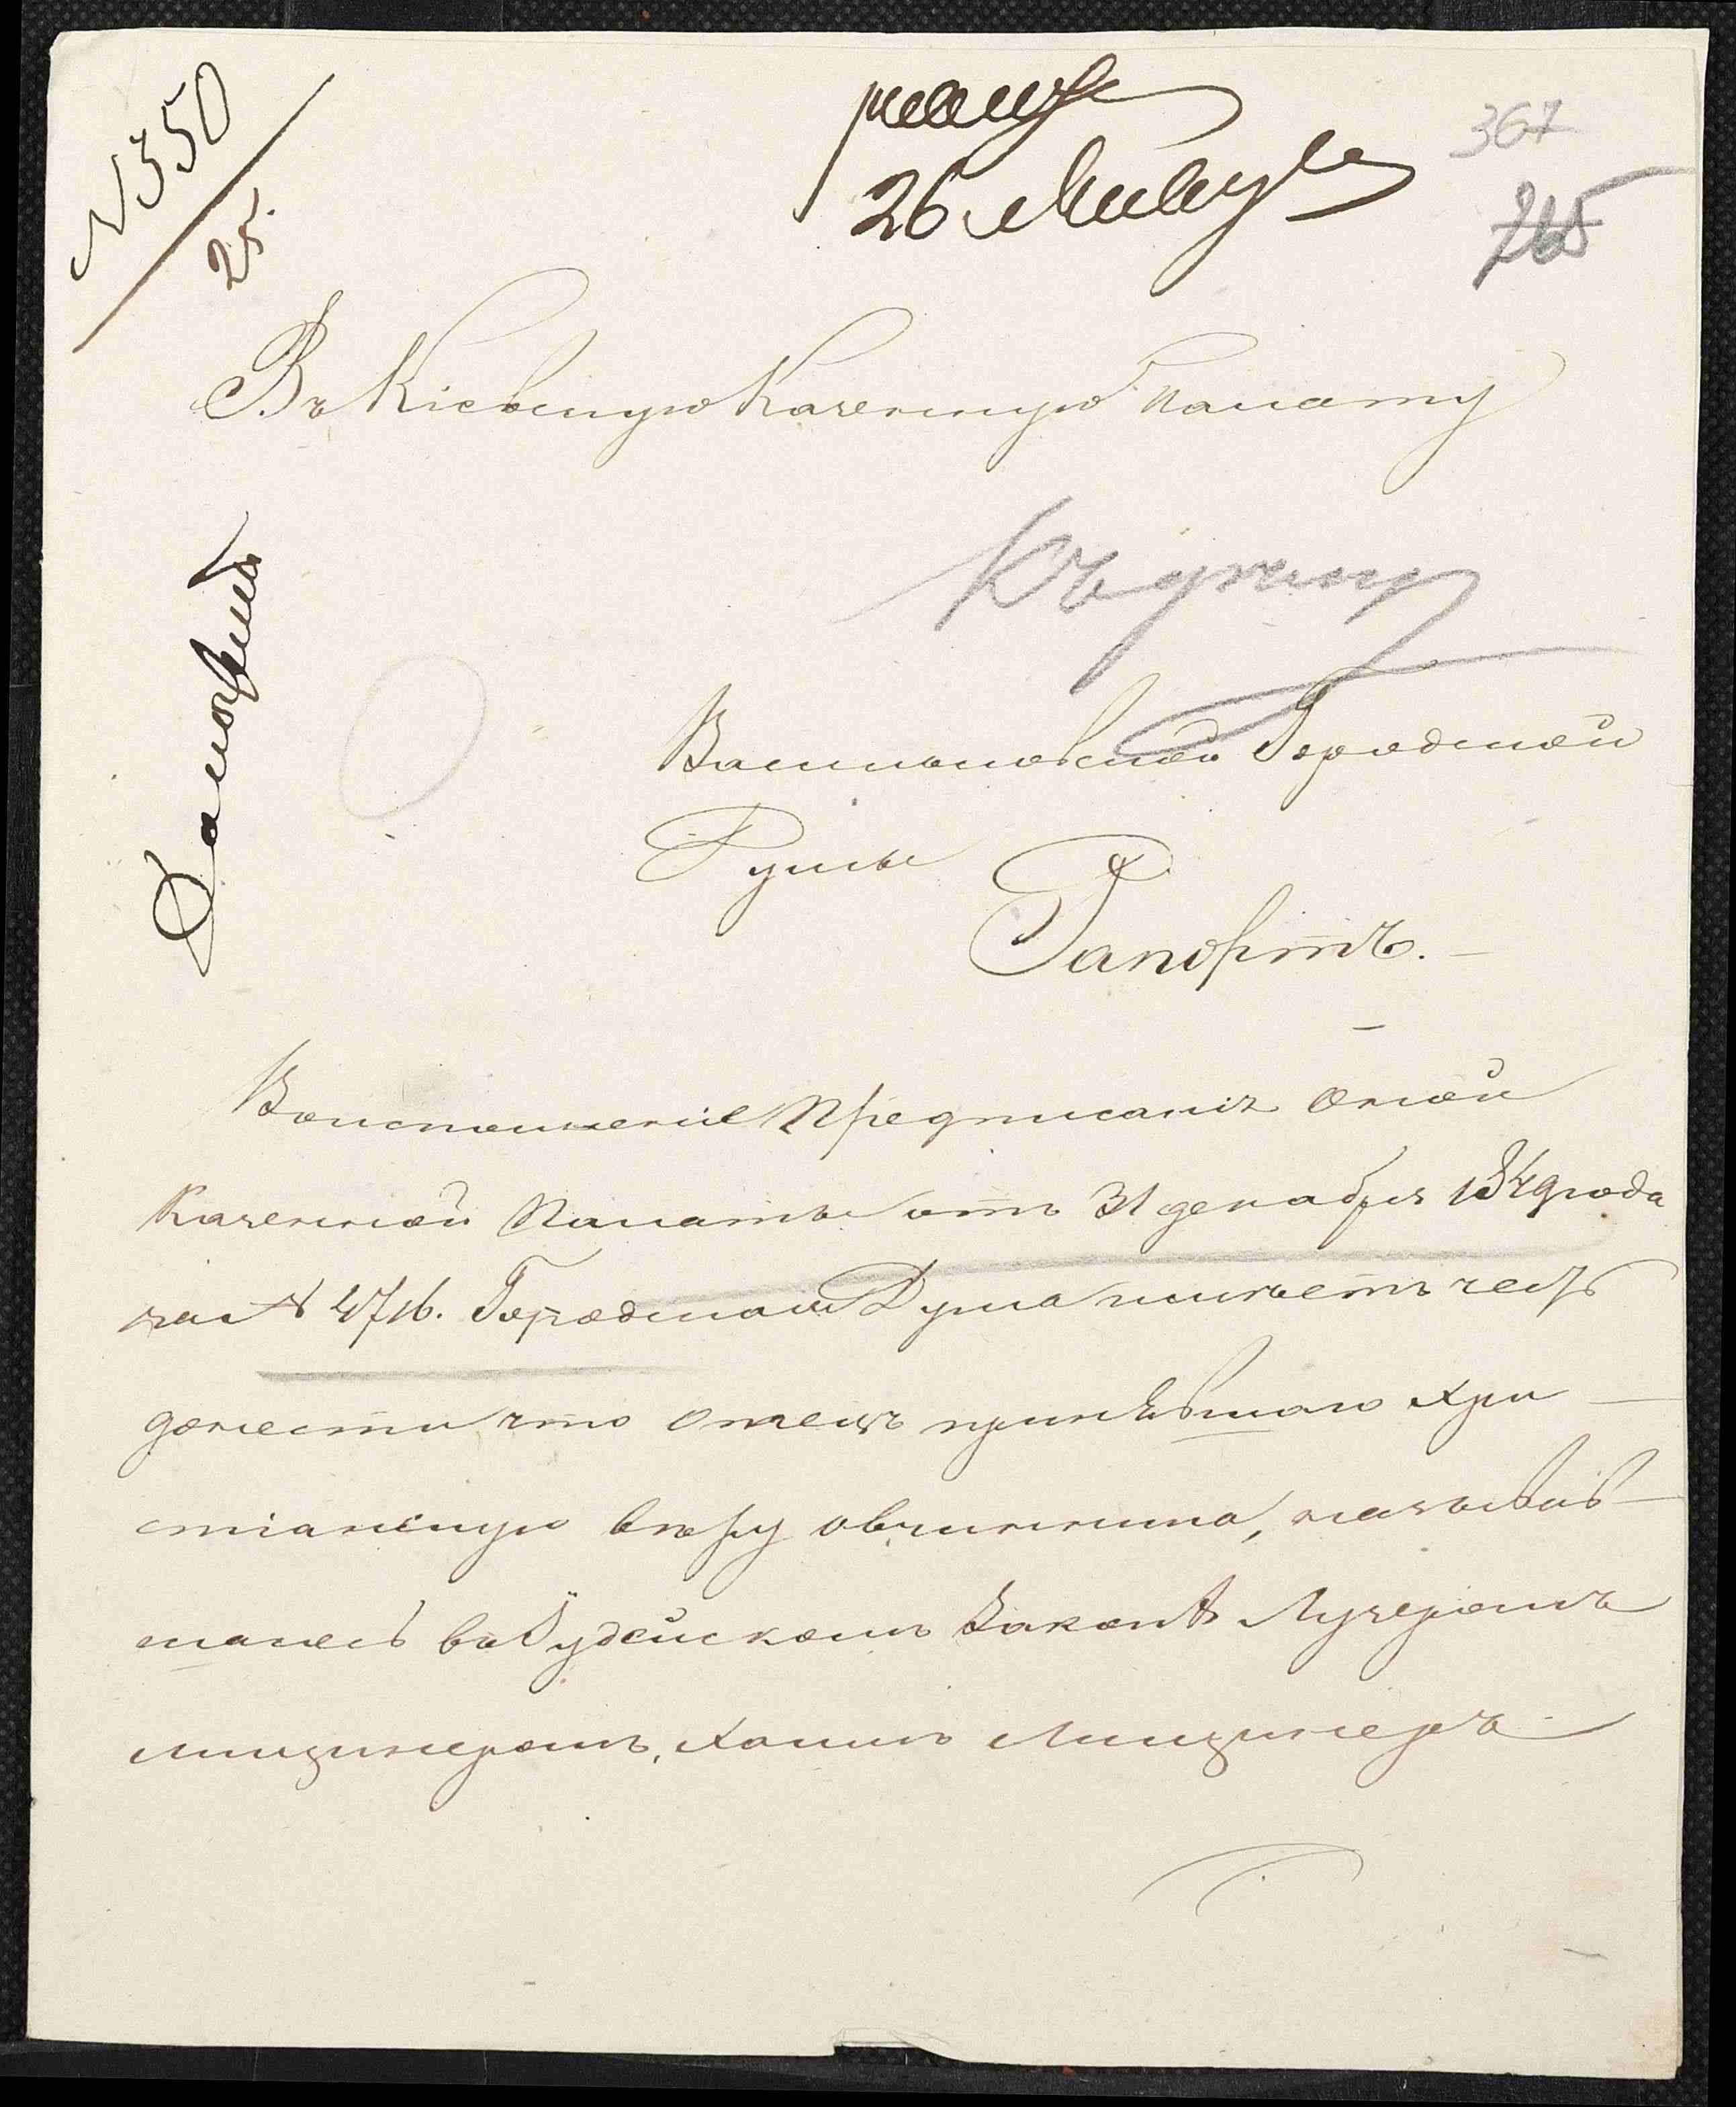 N 350
25.
26 Января
367
265
Въ Кіевскую Казенную Палату
Къ дѣлу
Васильковской Городской
Думы
Рапортъ.
Воисполненіе Предписанія Оной
Казенной Палаты отъ 31 декабря 1849 года
за N 4716. Городская Дума имѣетъ честь
донести что отецъ принявшаго Хри
стіанскую вѣру овчинника, называв
шаесь въ Іудейскомъ Законѣ Лузеромъ
Лищинеромъ, Хаимъ Лищинеръ